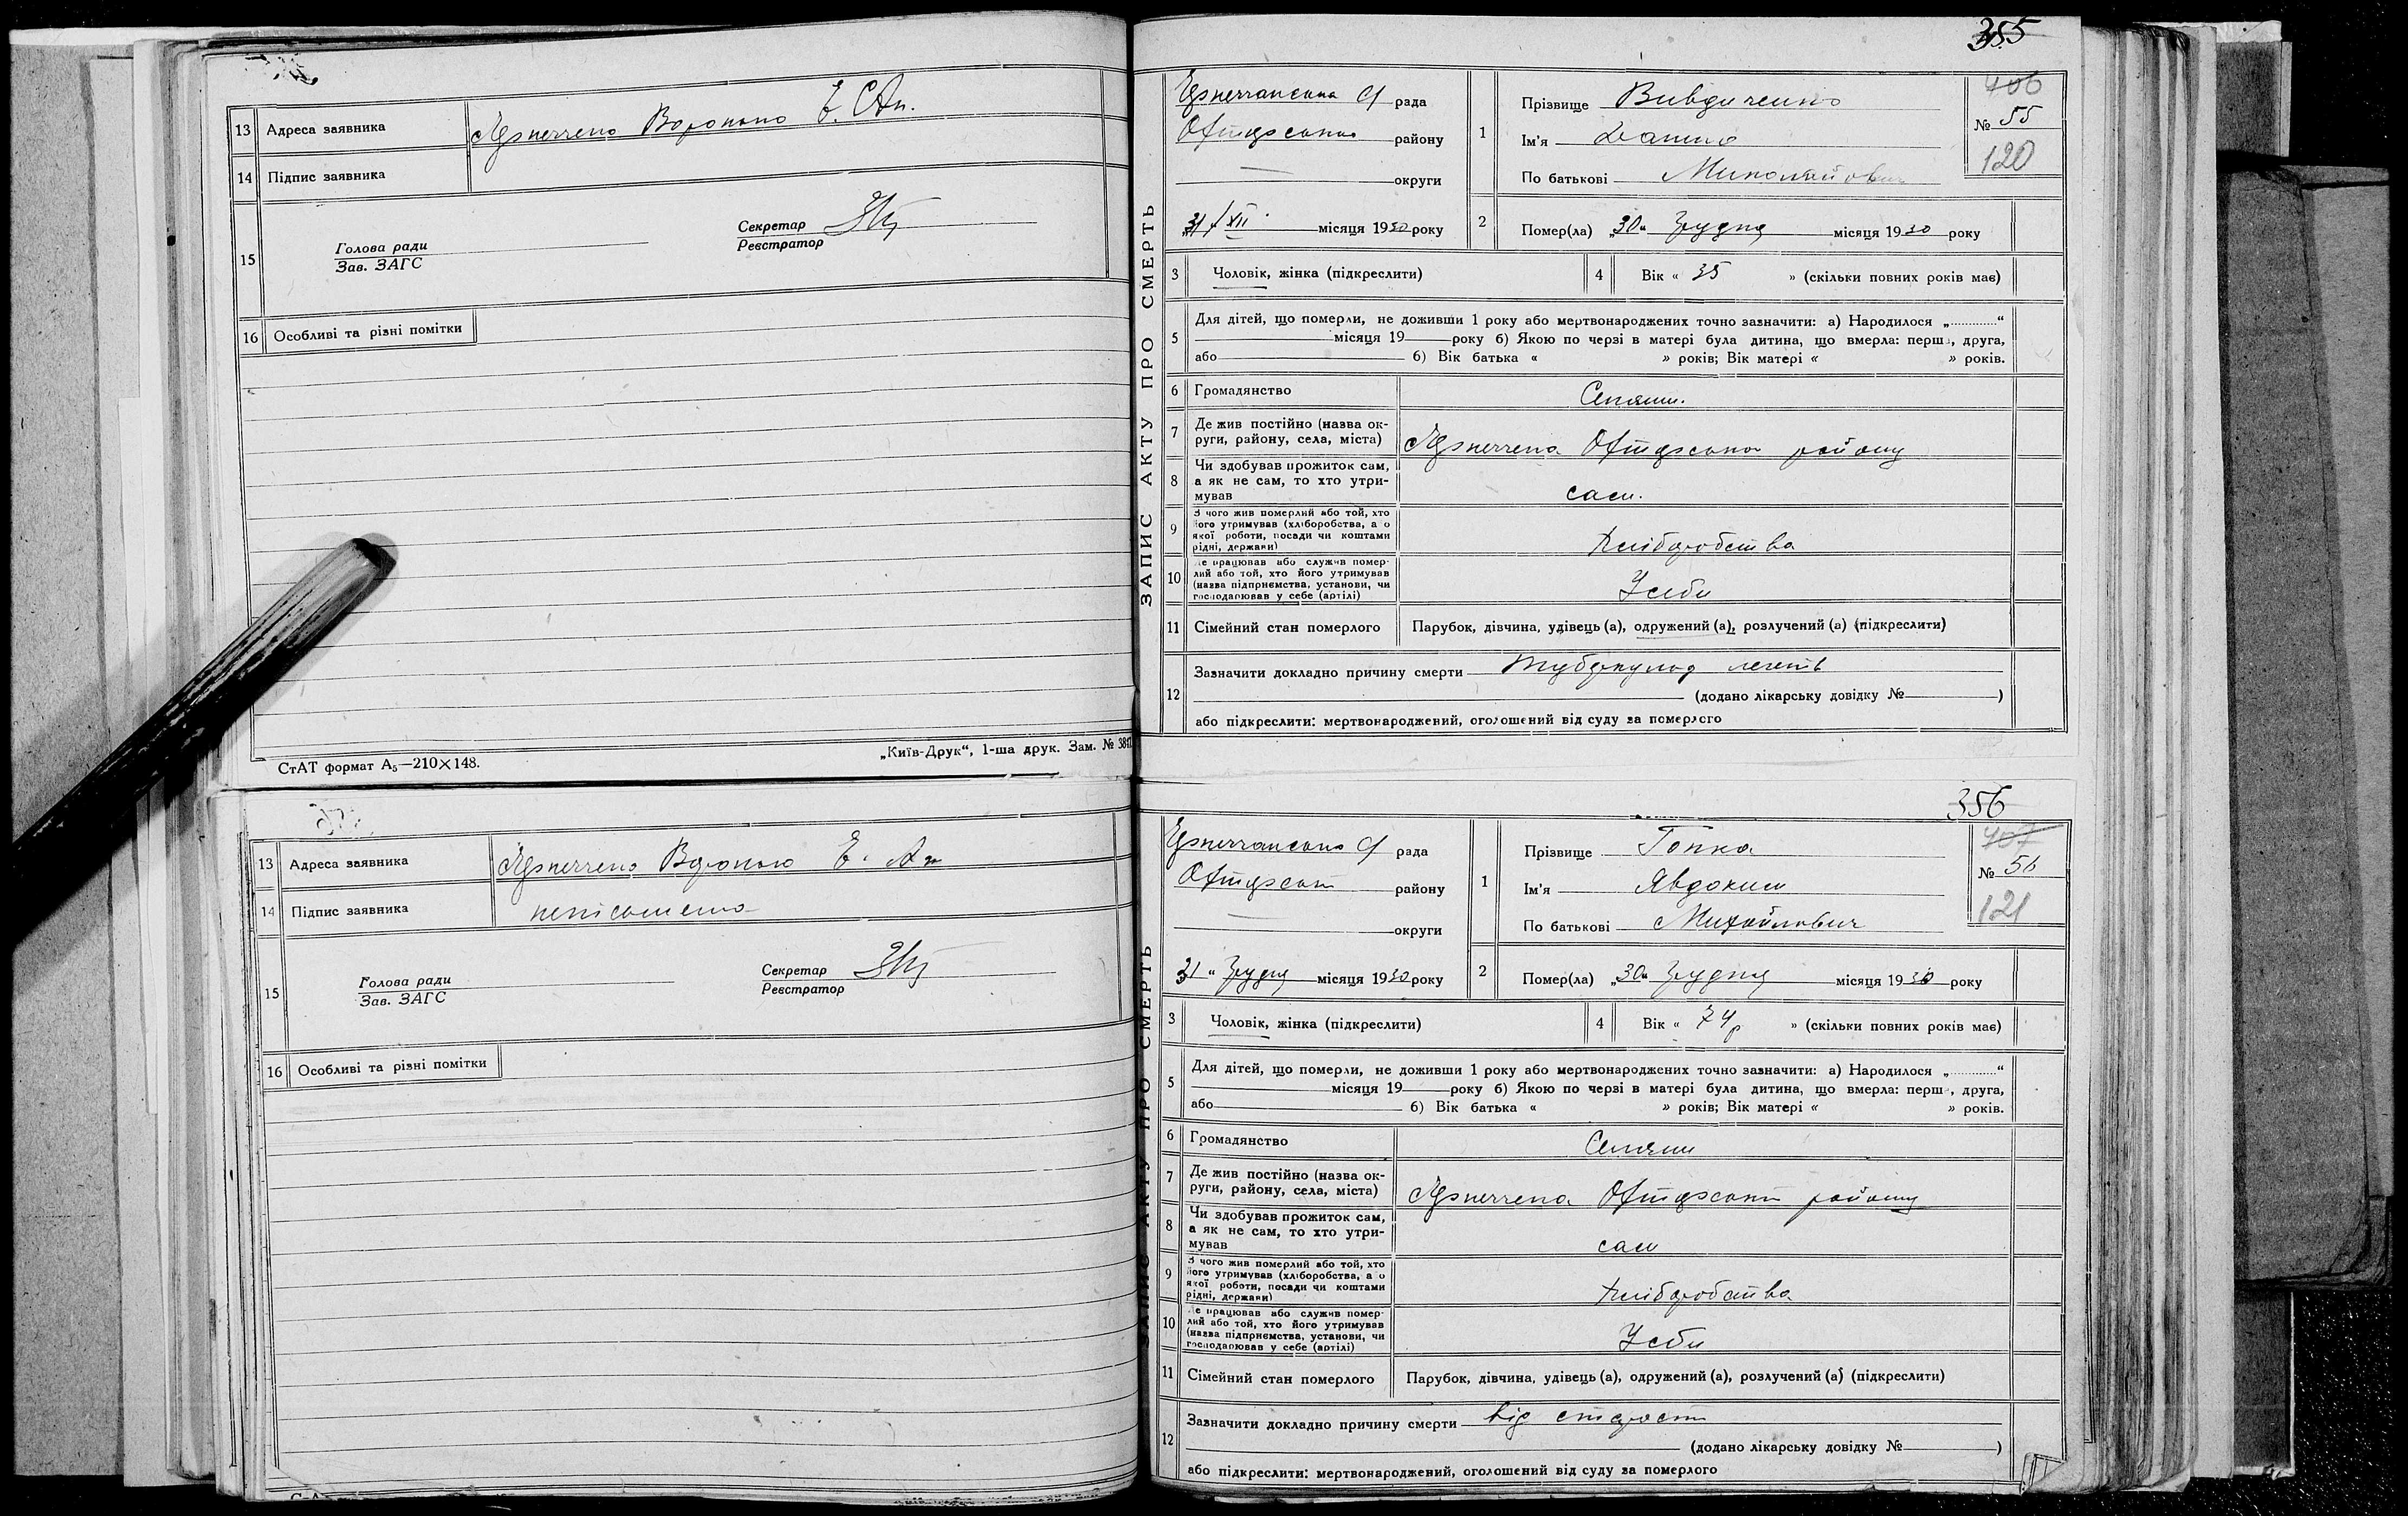 13 Адреса заявника
14 Підпис заявника
15 Голова ради
Зав. ЗАГС
Секретар
Реєстратор
16 Особливі та різні помітки
СтАТ формат А5—210×148.
„Київ-Друк“, 1-ша друк. Зам. №
13 Адреса заявника
14 Підпис заявника
15 Голова ради
Зав. ЗАГС
Секретар
Реєстратор
16 Особливі та різні помітки
355
ЗАПИС АКТУ ПРО СМЕРТЬ
рада
району
округи
31/XII місяця 1930 року
1 Прізвище
Ім'я Данило
По батькові Миколайович
406
№ 55
120
2 Помер(ла) „30“ грудня місяця 1930 року
3 Чоловік, жінка (підкреслити)
4 Вік « 35 » (скільки повних років має)
5 Для дітей, що померли, не доживши 1 року або мертвонароджених точно зазначити: а) Народилося „............“
місяця 19 року б) Якою по черзі в матері була дитина, що вмерла: перша, друга,
або б) Вік батька « » років; Вік матері « » років.
6 Громадянство Селянин.
7 Де жив постійно (назва ок-
руги, району, села, міста) району
8 Чи здобував прожиток сам,
а як не сам, то хто утри-
мував сам.
9 З чого жив померлий або той, хто
його утримував (хліборобства, а о
якої роботи, посади чи коштами
рідні, держави) Хліборобства
10 Де працював або служив помер-
лий або той, хто його утримував
(назва підприємства, установи, чи
господарював у себе (артілі) У себи
11 Сімейний стан померлого Парубок, дівчина, удівець (а), одружений (а), розлучений (а) (підкреслити)
12 Зазначити докладно причину смерти туберкульоз легенів
(додано лікарську довідку № )
або підкреслити: мертвонароджений, оголошений від суду за померлого
356
ЗАПИС АКТУ ПРО СМЕРТЬ
рада
району
округи
31 “ грудня місяця 1930 року
1 Прізвище Топка
Ім'я Явдоким
По батькові Михайлович
407
№ 56
121
2 Помер(ла) „30“ грудня місяця 1930 року
3 Чоловік, жінка (підкреслити)
4 Вік « 74 р » (скільки повних років має)
5 Для дітей, що померли, не доживши 1 року або мертвонароджених точно зазначити: а) Народилося „............“
місяця 19 року б) Якою по черзі в матері була дитина, що вмерла: перша, друга,
або б) Вік батька « » років; Вік матері « » років.
6 Громадянство Селянин
7 Де жив постійно (назва ок-
руги, району, села, міста) району
8 Чи здобував прожиток сам,
а як не сам, то хто утри-
мував сам
9 З чого жив померлий або той, хто
його утримував (хліборобства, а о
якої роботи, посади чи коштами
рідні, держави) Хліборобства
10 Де працював або служив помер-
лий або той, хто його утримував
(назва підприємства, установи, чи
господарював у себе (артілі) У себи
11 Сімейний стан померлого Парубок, дівчина, удівець (а), одружений (а), розлучений (а) (підкреслити)
12 Зазначити докладно причину смерти від старости
(додано лікарську довідку № )
або підкреслити: мертвонароджений, оголошений від суду за померлого